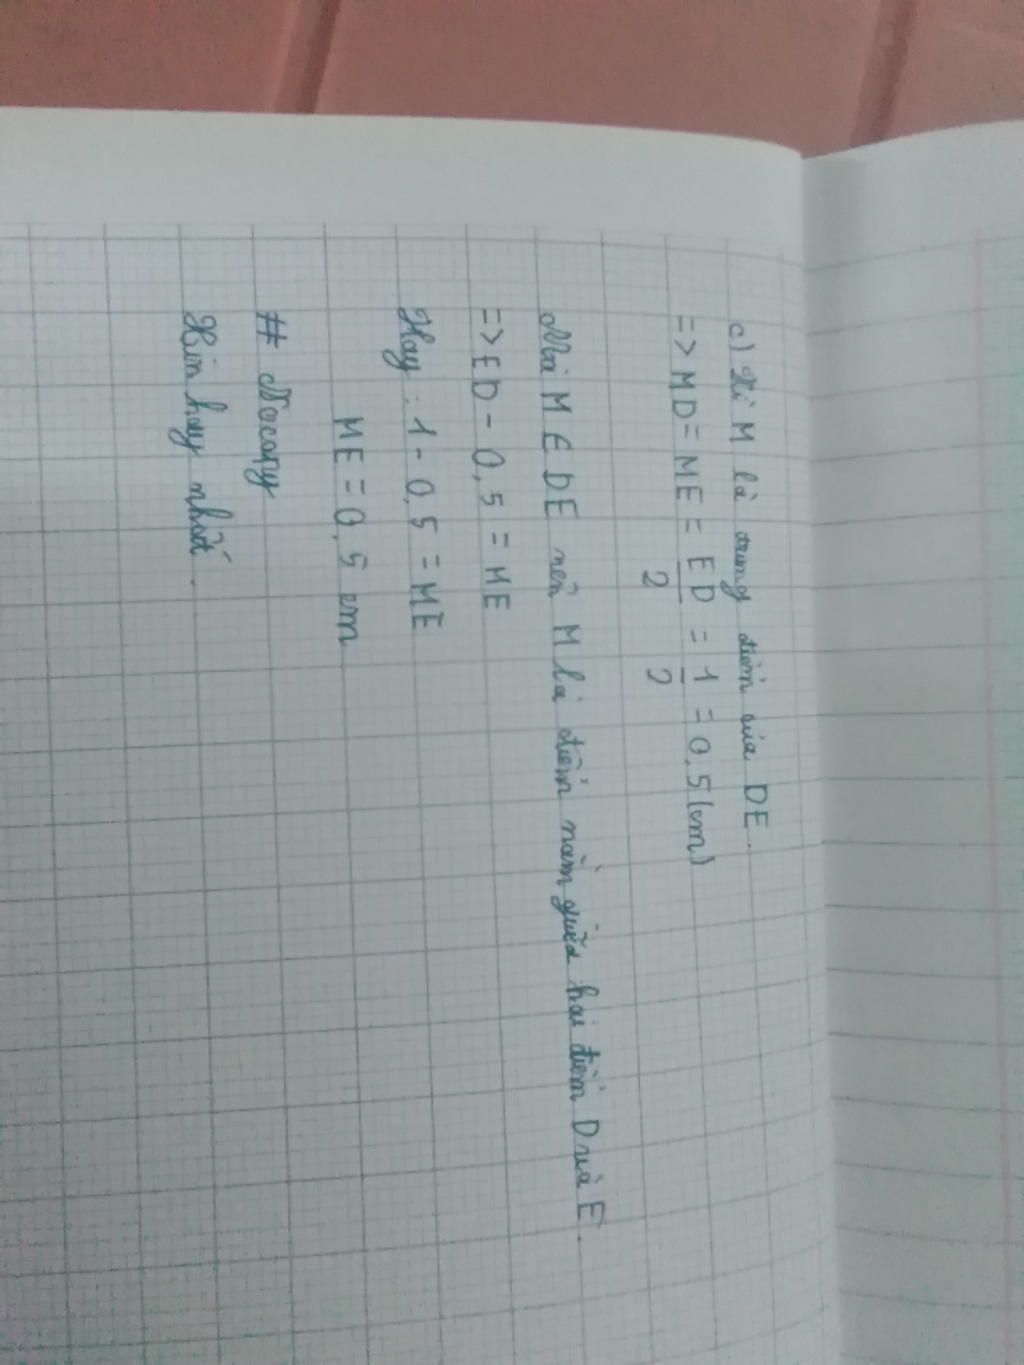 c) Vì M là trung điểm của DE.
=> MD = ME = ED/2 = 1/2 = 0,5 (cm)
Mà M ∈ DE nên M là điểm nằm giữa hai điểm D và E.
=> ED - 0,5 = ME
Hay: 1 - 0,5 = ME
ME = 0,5 cm
# Nocopy
Xin hay nhất.